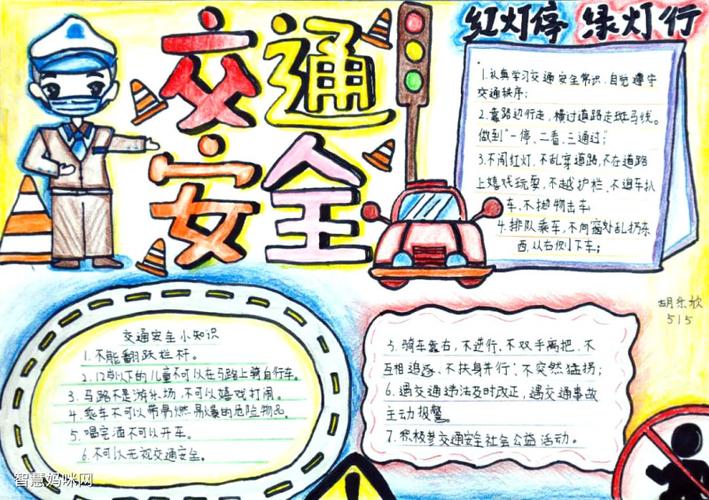 交通
安全
红灯停 绿灯行
1.认真学习交通安全常识,自觉遵守
交通秩序;
2.靠路边行走,横过道路走斑马线。
做到"一停、二看、三通过;
3.不闯红灯,不乱穿道路,不在道路
上嬉戏玩耍,不越护栏、不追车扒
车,不抛物击车
4.排队乘车,不向窗外乱扔东
西,从右侧下车;
胡乐
515
交通安全小知识
1.不能翻跃栏杆。
2.12岁以下的儿童不可以在马路上骑自行车。
3.马路不是游乐场,不可以嬉戏打闹。
4.乘车不可以带易燃易爆的危险物品。
5.喝完酒不可以开车。
6.不可以无视交通安全。
5.骑车靠右,不逆行、不双手离把,不
互相追逐、不扶身并行、不突然猛拐;
6.遇交通违法及时改正,遇交通事故
主动报警
7.积极参交通安全社会公益活动。
智慧妈咪网